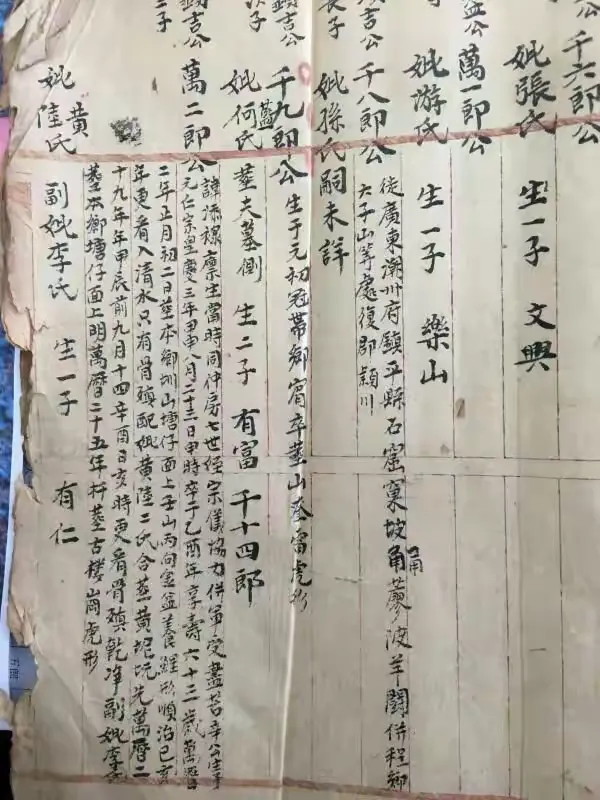 千六郎公
妣張氏
生一子 文興
益公
萬一郎公
妣游氏
生一子 樂山
吉公
千八郎公
徒廣東潮州府鎮平縣石窟窠坡角蓼波羊鬪併程鄉
六子山等處復郡穎川
長子
妣孫氏
嗣未詳
吉公
千九郎公
生于元初冠帶鄉賓卒塟山
虎形
次子
妣藍何氏
塟夫墓側 生二子 有富 千十四郎
鎮吉公
萬二郎公
諱添祿廪生當時同仲房七世經宗儀協力併軍受盡苦辛公生于
元仁宗皇慶三年甲申八月二十三日申時卒于乙酉年享壽六十二歲萬曆
二年正月初二日塟本鄉圳山塘仔面上壬山丙向金盆養鯉形順治己亥
年更看入清水只有骨殖配妣黃陸二氏合塟黃坭坑先萬曆二
十九年甲辰前九月十四辛酉日亥時更看骨殖乾净副妣李氏
塟本鄉塘仔面上明萬曆二十五年扦塟古樓崗虎形
二子
妣黃陸氏
副妣李氏 生一子 有仁